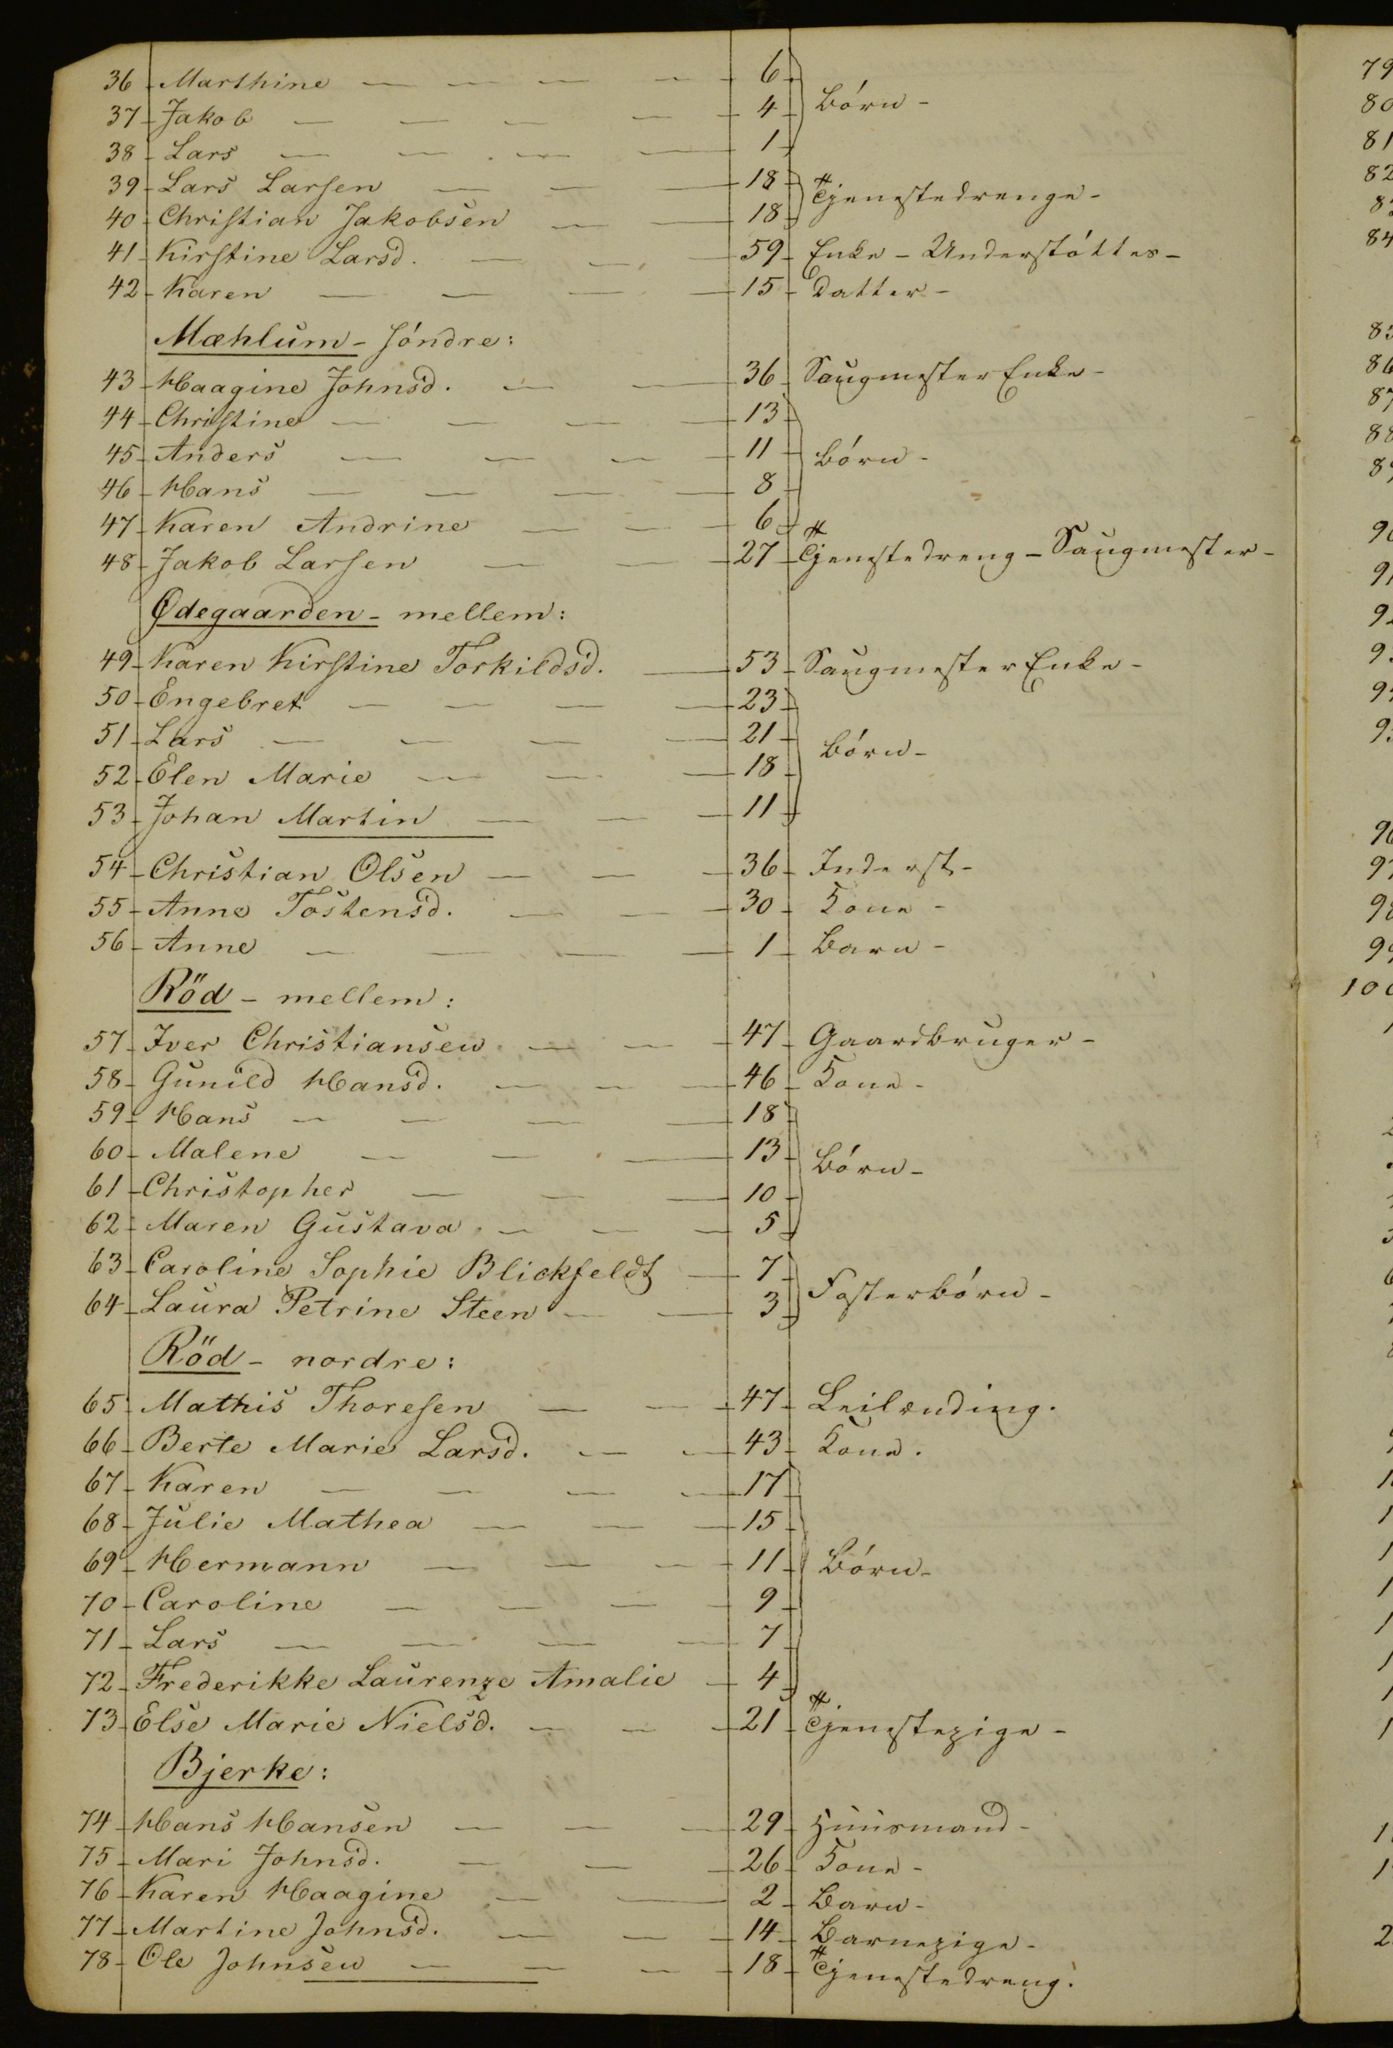 36 Marthine — — — — 6
37 Jakob — — — — 4 Børn -
38 Lars — — — — 1
39 Lars Larsen — — — 18 Tjenestedrenge -
40 Christian Jakobsen — — 18
41 Kirstine Larsd. — — — 59 Enke - Understøttes -
42 Karen — — — — 15 Datter -
Mæhlum - søndre:
43 Haagine Johnsd. — — 36 Saugmester Enke -
44 Christine — — — — 13
45 Anders — — — 11 Børn -
46 Hans — — — — 8
47 Karen Andrine — — — 6
48 Jakob Larsen — — — 27 Tjenestedreng - Saugmester -
Ødegaarden - mellem:
49 Karen Kirstine Torkildsd. — 53 Saugmester Enke -
50 Engebret — — — — 23
51 Lars — — — — 21 Børn -
52 Elen Marie — — — 18
53 Johan Martin — — — 11
54 Christian Olsen — — — 36 Inderst -
55 Anne Tostensd. — — — 30 Kone -
56 Anne — — — — 1 Barn -
Röd - mellem:
57 Iver Christiansen — — — 47 Gaardbruger -
58 Gunild Hansd. — — — 46 Kone -
59 Hans — — — — 18
60 Malene — — — 13 Børn -
61 Christopher — — — 10
62 Maren Gustava — — — 5
63 Caroline Sophie Blickfeldt — 7 Fosterbørn -
64 Laura Petrine Steen — — 3
Röd - nordre:
65 Mathis Thoresen — — 47 Leilænding.
66 Berte Marie Larsd. — — 43 Kone.
67 Karen — — — — 17
68 Julie Mathea — — — 15
69 Hermann — — — 11 Børn -
70 Caroline — — — — 9
71 Lars — — — — 7
72 Frederikke Laurenze Amalie — 4
73 Else Marie Nielsd. — — — 21 Tjenestepige -
Bjerke:
74 Hans Hansen — — — 29 Huusmand -
75 Mari Johnsd. — — — 26 Kone -
76 Karen Haagine — — 2 Barn -
77 Martine Johnsd. — — — 14 Barnepige -
78 Ole Johnsen — — — 18 Tjenestedreng.
79
80
81
82
84
86
88
100